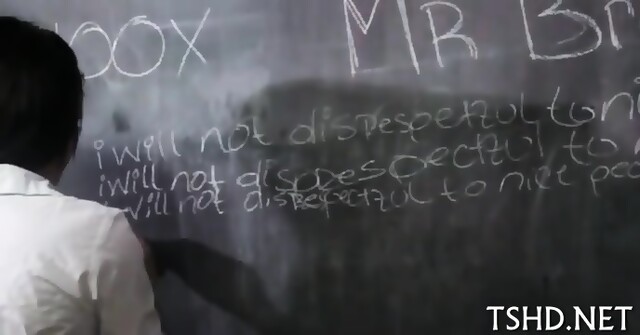 oox MR Br
i will not dispespetzul to ni
i will not disopespectzul to
i will not disRespetzul to nice peo
TSHD.NET